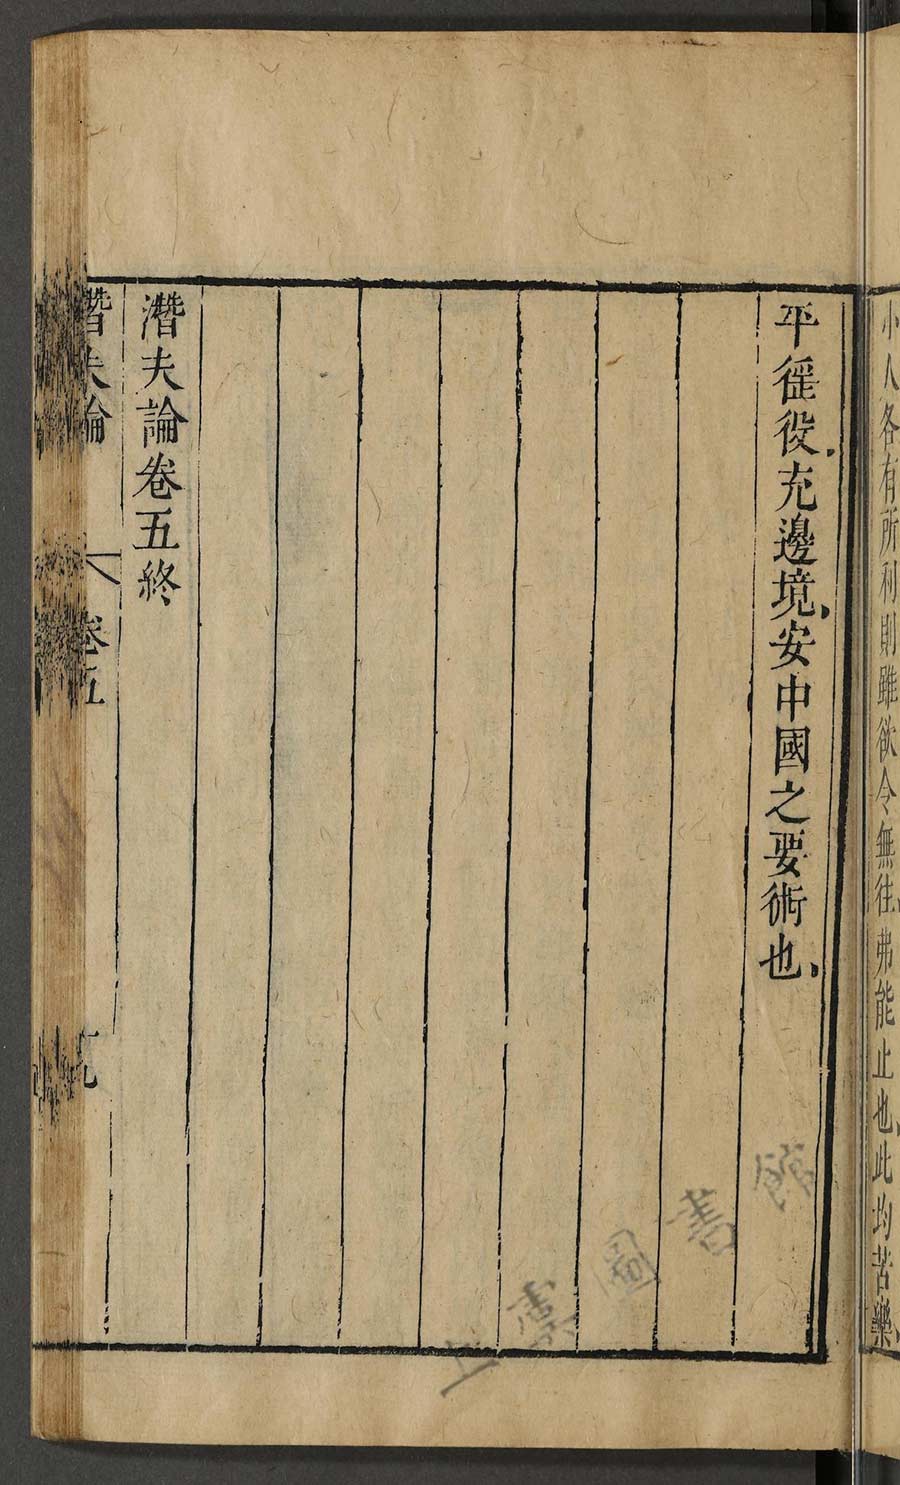 小人各有所利則雖欲令無往弗能止也此均苦樂
平徭役充邊境安中國之要術也
潛夫論卷五終
潛夫論 卷五 九
上虞圖書館